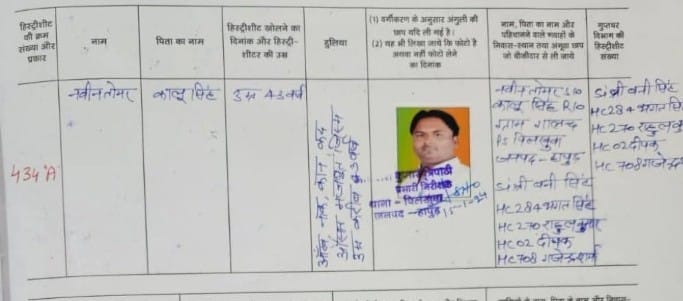 हिस्ट्रीशीट
की क्रम
संख्या और
प्रकार
नाम
पिता का नाम
हिस्ट्रीशीट खोलने का
दिनांक और हिस्ट्री-
शीटर की उम्र
हुलिया
(1) वर्गीकरण के अनुसार अंगुली की
छाप यदि ली गई है।
(2) यह भी लिखा जाये कि फोटो है
अथवा नहीं फोटो लेने
का दिनांक
नाम, पिता का नाम और
पहिचानने वाले गवाहों के
निवास-स्थान तथा अंगूठा छाप
जो चौकीदार से ली जाये
गुप्तचर
विभाग की
हिस्ट्रीशीट
संख्या
434 "A"
नवीन तोमर
कालू सिंह
उम्र 43 वर्ष
आँख, नाक, कान, कद
औसत
उम्र करीब 43 वर्ष
त्रिपाठी
प्रभारी निरीक्षक
थाना - पिलखुवा
जनपद - हापुड़
15-1-24
नवीन तोमर S/O
कालू सिंह R/O
ग्राम गालन्द
PS पिलखुवा
जनपद - हापुड़
SI श्री बनी सिंह
HC 284 भगत सिंह
HC 270 राहुल कुमार
HC 02 दीपक
HC 708 गजेन्द्र शर्मा
SI श्री बनी सिंह
HC 284 भगत सिंह
HC 270 राहुल कुमार
HC 02 दीपक
HC 708 गजेन्द्र